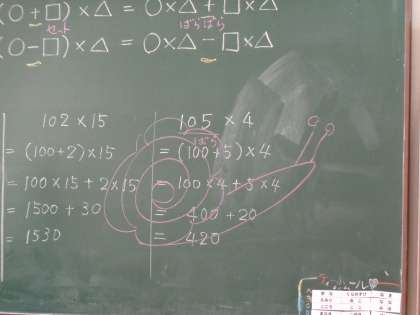 (○+□)×△ = ○×△+□×△
セット ばらばら
(○-□)×△ = ○×△-□×△
102×15
= (100+2)×15
= 100×15+2×15
= 1500+30
= 1530
105×4
ばら
= (100+5)×4
= 100×4+5×4
= 400+20
= 420